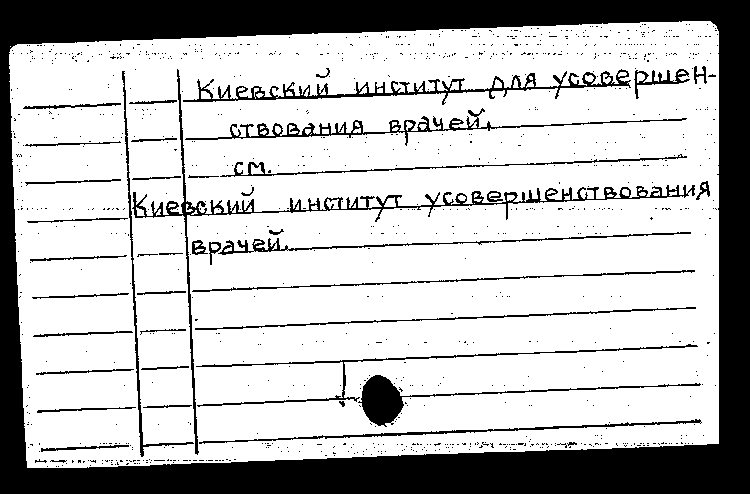 Киевский институт для усовершен-
ствования врачей.
см.
Киевский институт усовершенствования
врачей.